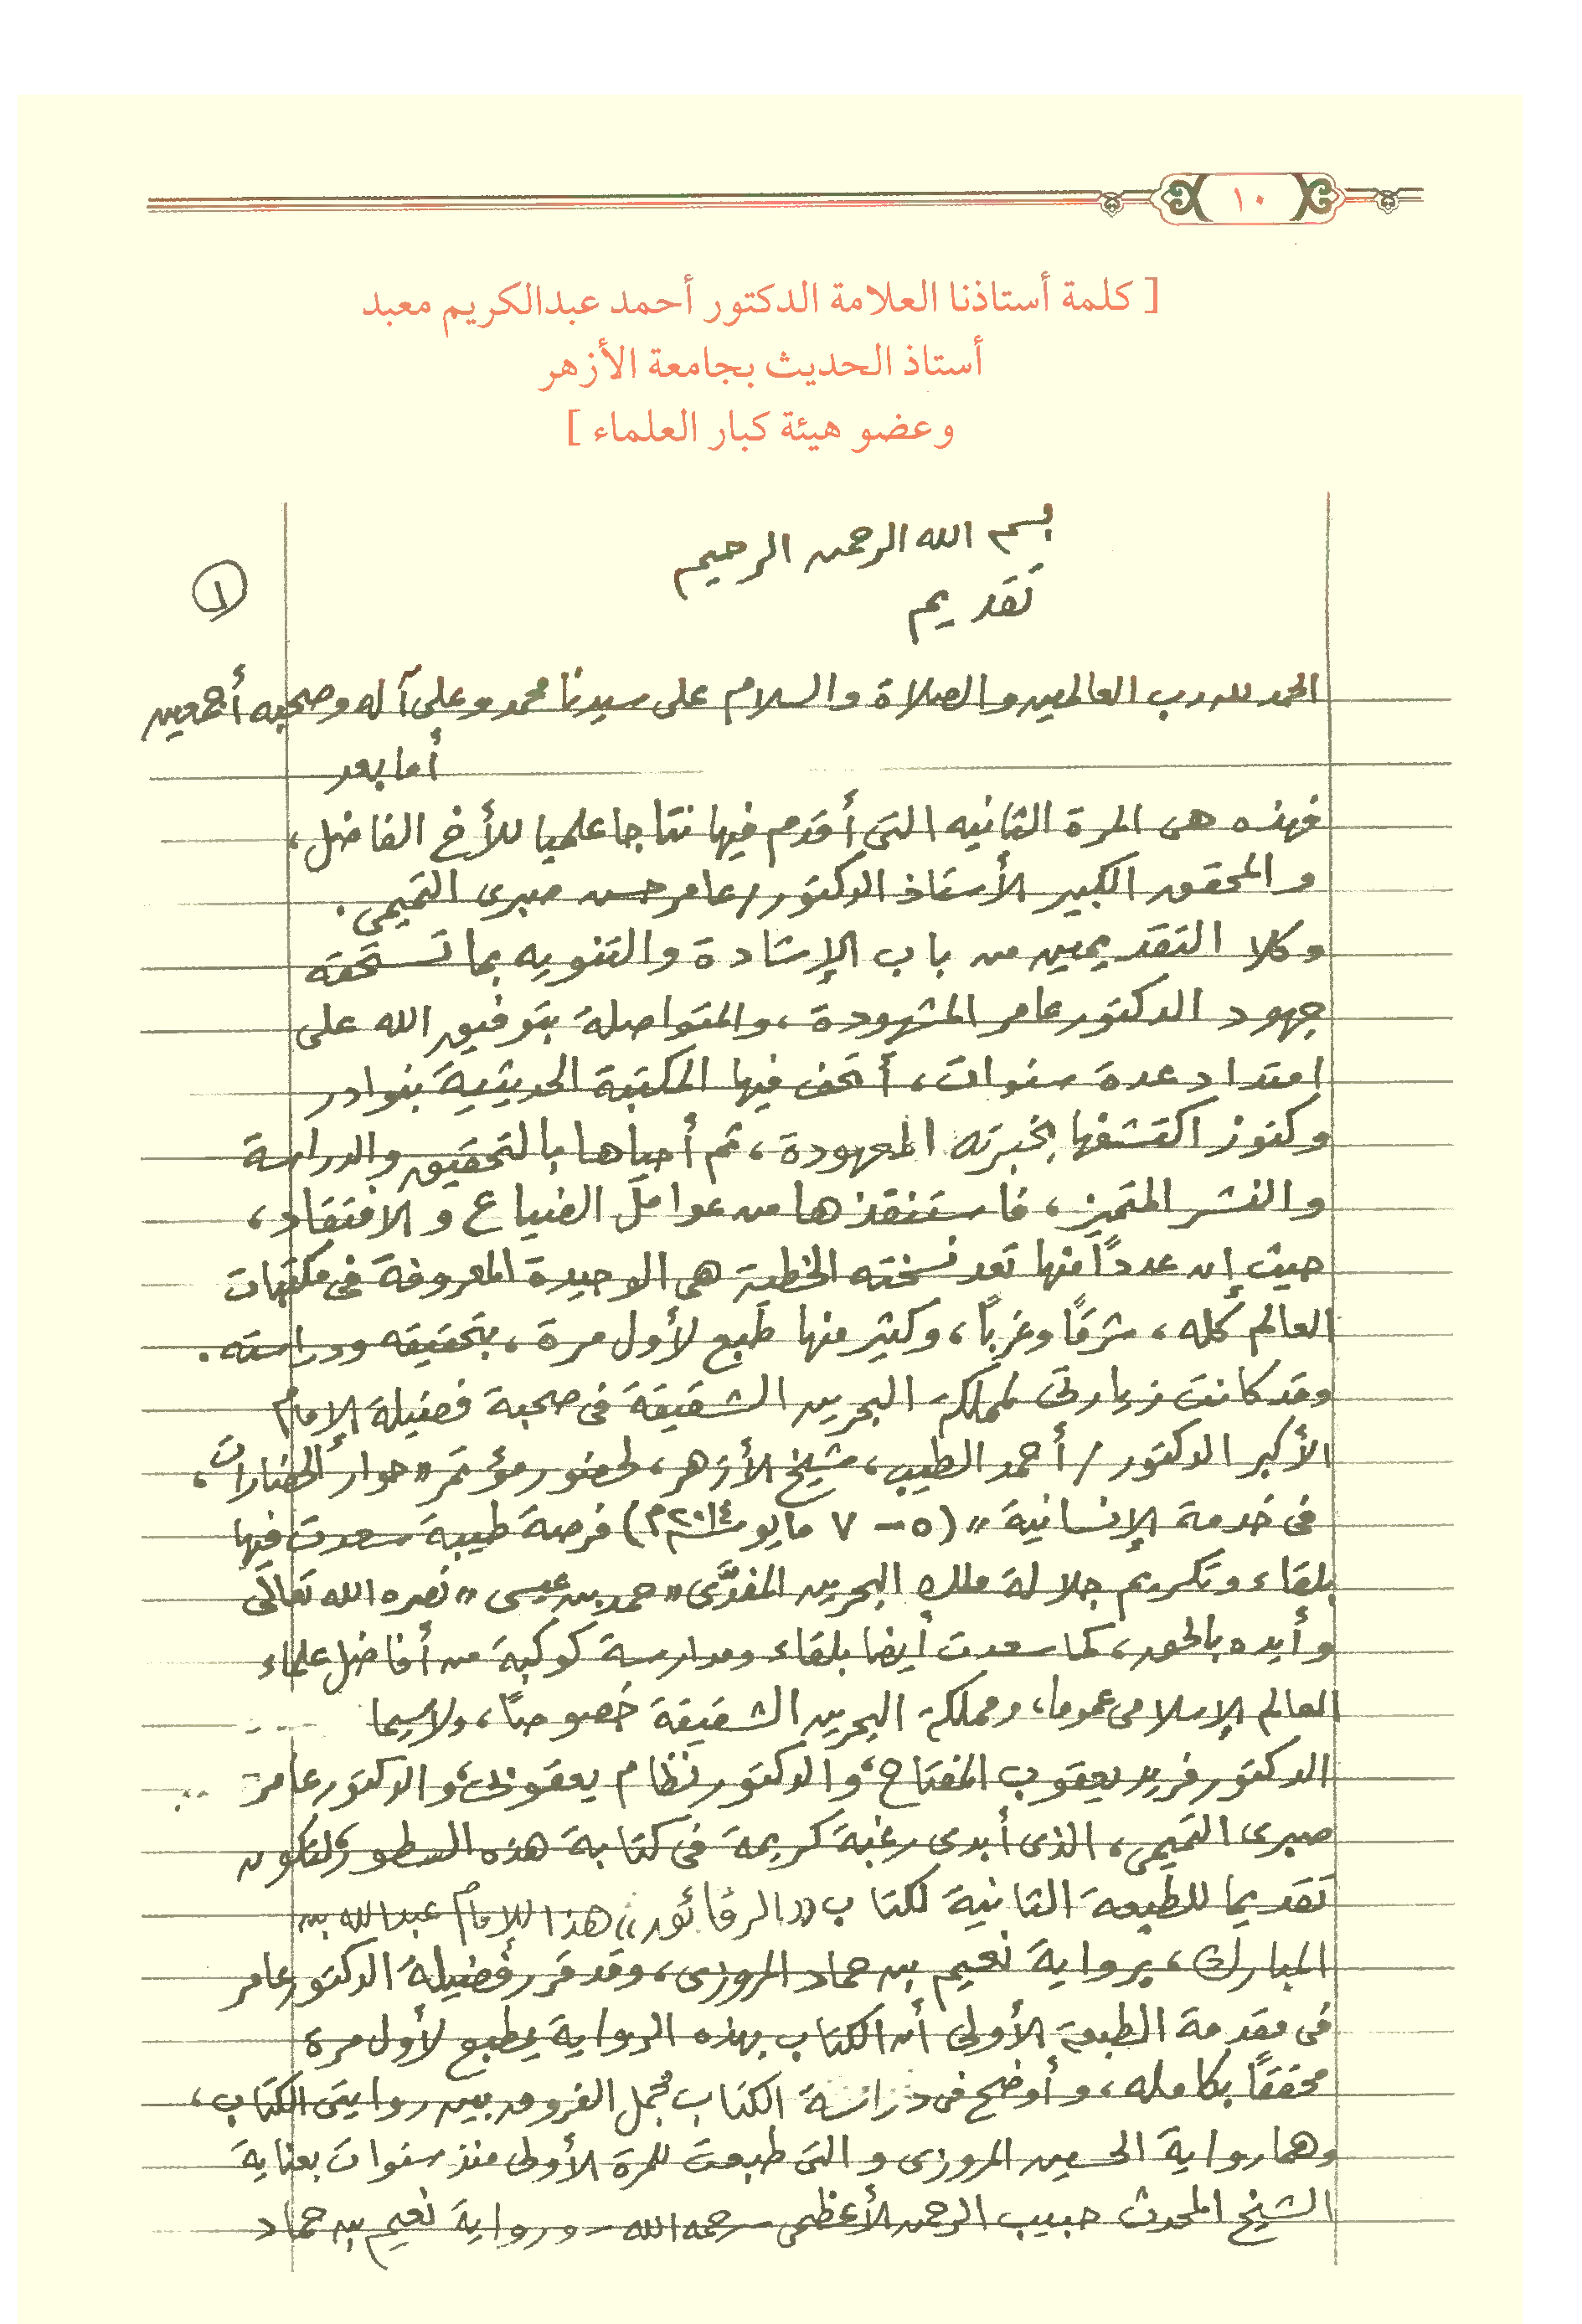 ١٠
[ كلمة أستاذنا العلامة الدكتور أحمد عبدالكريم معبد
أستاذ الحديث بجامعة الأزهر
وعضو هيئة كبار العلماء ]
بسم الله الرحمن الرحيم
تقديم
١
الحمد لله رب العالمين والصلاة والسلام على سيدنا محمد وعلى آله وصحبه أجمعين
أما بعد
فهذه هى المرة الثانيه التى أقدم فيها نتاجا علميا للأخ الفاضل،
والمحقق الكبير الأستاذ الدكتور/عامر حسن صبرى التميمى.
وكلا التقديمين من باب الإشادة والتنويه بما تستحقه
جهود الدكتور عامر المشهودة، والمتواصلة بتوفيق الله على
امتداد عدة سنوات، أتحف فيها المكتبة الحديثية بنوادر
وكنوز اكتشفها بخبرته المعهودة، ثم أحياها بالتحقيق والدراسة
والنشر المتميز، فاستنقذها من عوامل الضياع والافتقاد،
حيث إن عدداً منها تعد نسخته الخطية هى الوحيدة المعروفة فى مكتبات
العالم كله، شرقًا وغربًا، وكثير منها طبع لأول مرة، بتحقيقه ودراسته.
وقد كانت زيارتى لمملكة البحرين الشقيقة فى صحبة فضيلة الإمام
الأكبر الدكتور / أحمد الطيب، شيخ الأزهر، لحضور مؤتمر «حوار الحضارات،
فى خدمة الإنسانية» (٥-٧ مايو ٢٠١٤م) فرصة طيبة سعدت فيها
بلقاء وتكريم جلالة ملك البحرين المفدَّى «حمد بن عيسى» نصره الله تعالى
وأيده بالحق، كما سعدت أيضا بلقاء ومدارسة كوكبة من أفاضل علماء
العالم الإسلامى عموما، ومملكة البحرين الشقيقة خصوصًا، ولاسيما
الدكتور فريد يعقوب المفتاح، والدكتور نظام يعقوبى، والدكتور عامر
صبرى التميمى، الذى أبدى رغبة كريمة فى كتابة هذه السطور، لتكون
تقديما للطبعة الثانية لكتاب «الرقائق» هذا للإمام عبدالله بن
المبارك، برواية نعيم بن حماد المروزى، وقد قرر فضيلة الدكتور عامر
فى مقدمة الطبعة الأولى أن الكتاب بهذه الرواية يطبع لأول مرة
محققاً بكامله، وأوضح فى دراسة الكتاب مجمل الفروق بين روايتى الكتاب،
وهما رواية الحسين المروزى والتى طبعت للمرة الأولى منذ سنوات بعناية
الشيخ المحدث حبيب الرحمن الأعظمى - رحمه الله - ورواية نعيم بن حماد